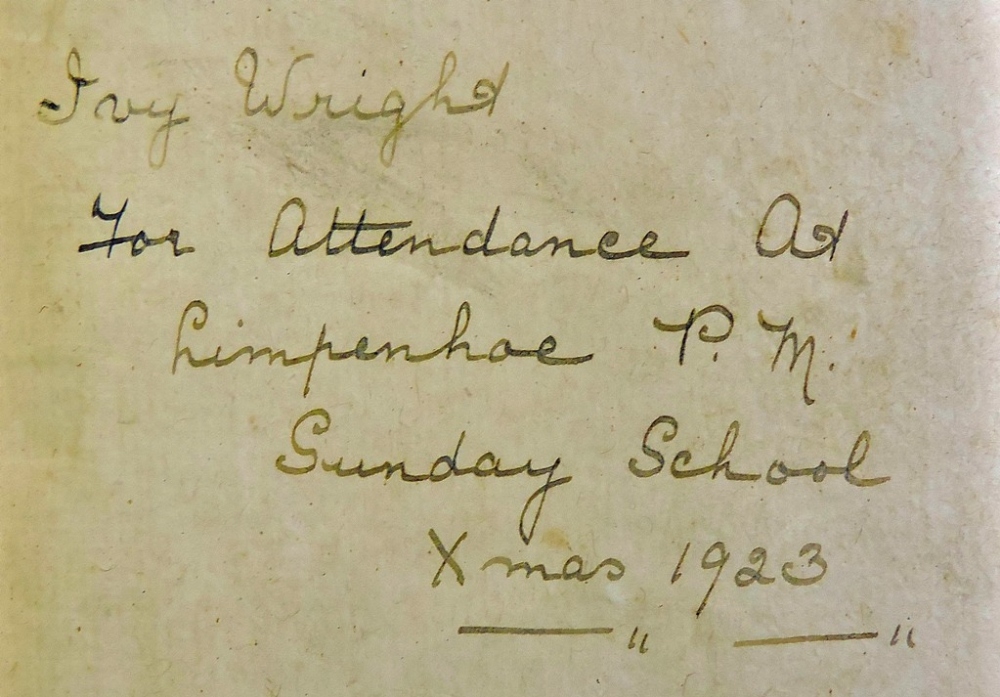 Ivy Wright
For Attendance At
Limpenhoe P. M.
Sunday School
Xmas 1923
—— " —— "